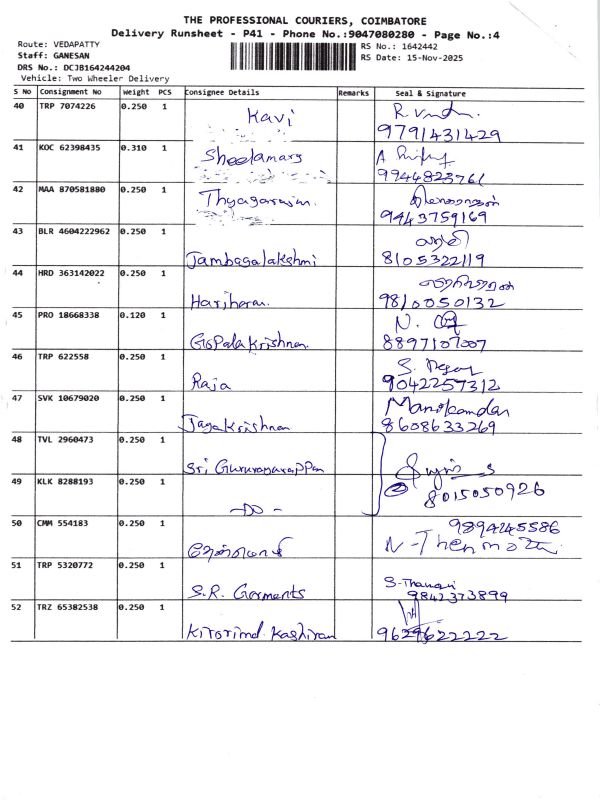 THE PROFESSIONAL COURIERS, COIMBATORE
Delivery Runsheet - P41 - Phone No.:9047080280 - Page No.:4
Route: VEDAPATTY
RS No.: 1642442
Staff: GANESAN
RS Date: 15-Nov-2025
DRS No.: DCJB164244204
Vehicle: Two Wheeler Delivery
S No Consignment No Weight PCS Consignee Details Remarks Seal & Signature
40 TRP 7074226 0.250 1 Kavi
9791431429
41 KOC 62398435 0.310 1 Sheelamary
9944823761
42 MAA 870581880 0.250 1 Thyagarajan
9443759169
43 BLR 4604222962 0.250 1
Jambagalakshmi 8105322119
44 HRD 363142022 0.250 1
Hariharan 9810050132
45 PRO 18668338 0.120 1 N.
GoPalakrishnan 8897107007
46 TRP 622558 0.250 1 S.
Raja 9042257312
47 SVK 10679020 0.250 1 Manikandan
Jayakrishnan 8608633269
48 TVL 2960473 0.250 1
Sri Guruvayurappan
49 KLK 8288193 0.250 1
8015050926
-DO-
50 CMM 554183 0.250 1 9894245586
51 TRP 5320772 0.250 1
S.R. Garments 9842373899
52 TRZ 65382538 0.250 1
9629622222